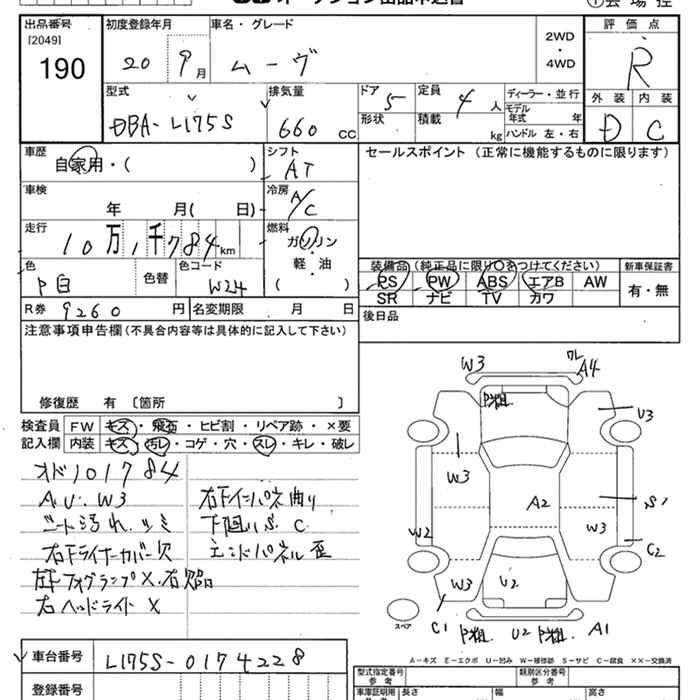 出品番号
[2049]
190
初度登録年月
20 9月
車名・グレード
ムーヴ
2WD
・
4WD
評価点
R
外装 内装
D C
型式
DBA-L175S
排気量
660 CC
ドア 5
定員 4人
ディーラー・並行
モデル年式 年
形状
積載 kg
ハンドル 左・右
車歴
自家用・( )
シフト
AT
セールスポイント (正常に機能するものに限ります)
車検
年 月( 日)
冷房
A/C
走行
10万1千784km
燃料
ガソリン
軽・油
( )
色
P白
色替
色コード
W24
装備品 (純正品に限り〇をつけてください)
PS PW ABS エアB AW
SR ナビ TV カワ
新車保証書
有・無
R券 9260円
名変期限 月 日
後日品
注意事項申告欄(不具合内容等は具体的に記入して下さい)
修復歴 有 〔箇所 〕
検査員 FW キズ・飛石・ヒビ割・リペア跡・×要
記入欄 内装 キズ・汚レ・コゲ・穴・スレ・キレ・破レ
オド101784
A.U.W3
シート汚れ.シミ
右下ライナーカバー欠
左フォグランプX.右欠品
右ヘッドライトX
右下インパネ曲り
下廻りS C
エンドパネル歪
W3
ワレ A4
P粗.
U3
W3
A2
S1
W3
W2
C2
W3
U2
C1
P粗.
U2
P粗.
A1
スペア
A-キズ E-エクボ U-凹み W-補修跡 S-サビ C-腐食 ××-交換済
車台番号
L175S-0174228
登録番号
型式指定番号
参考
類別区分番号
参考
車庫証明用
長さ
幅
高さ